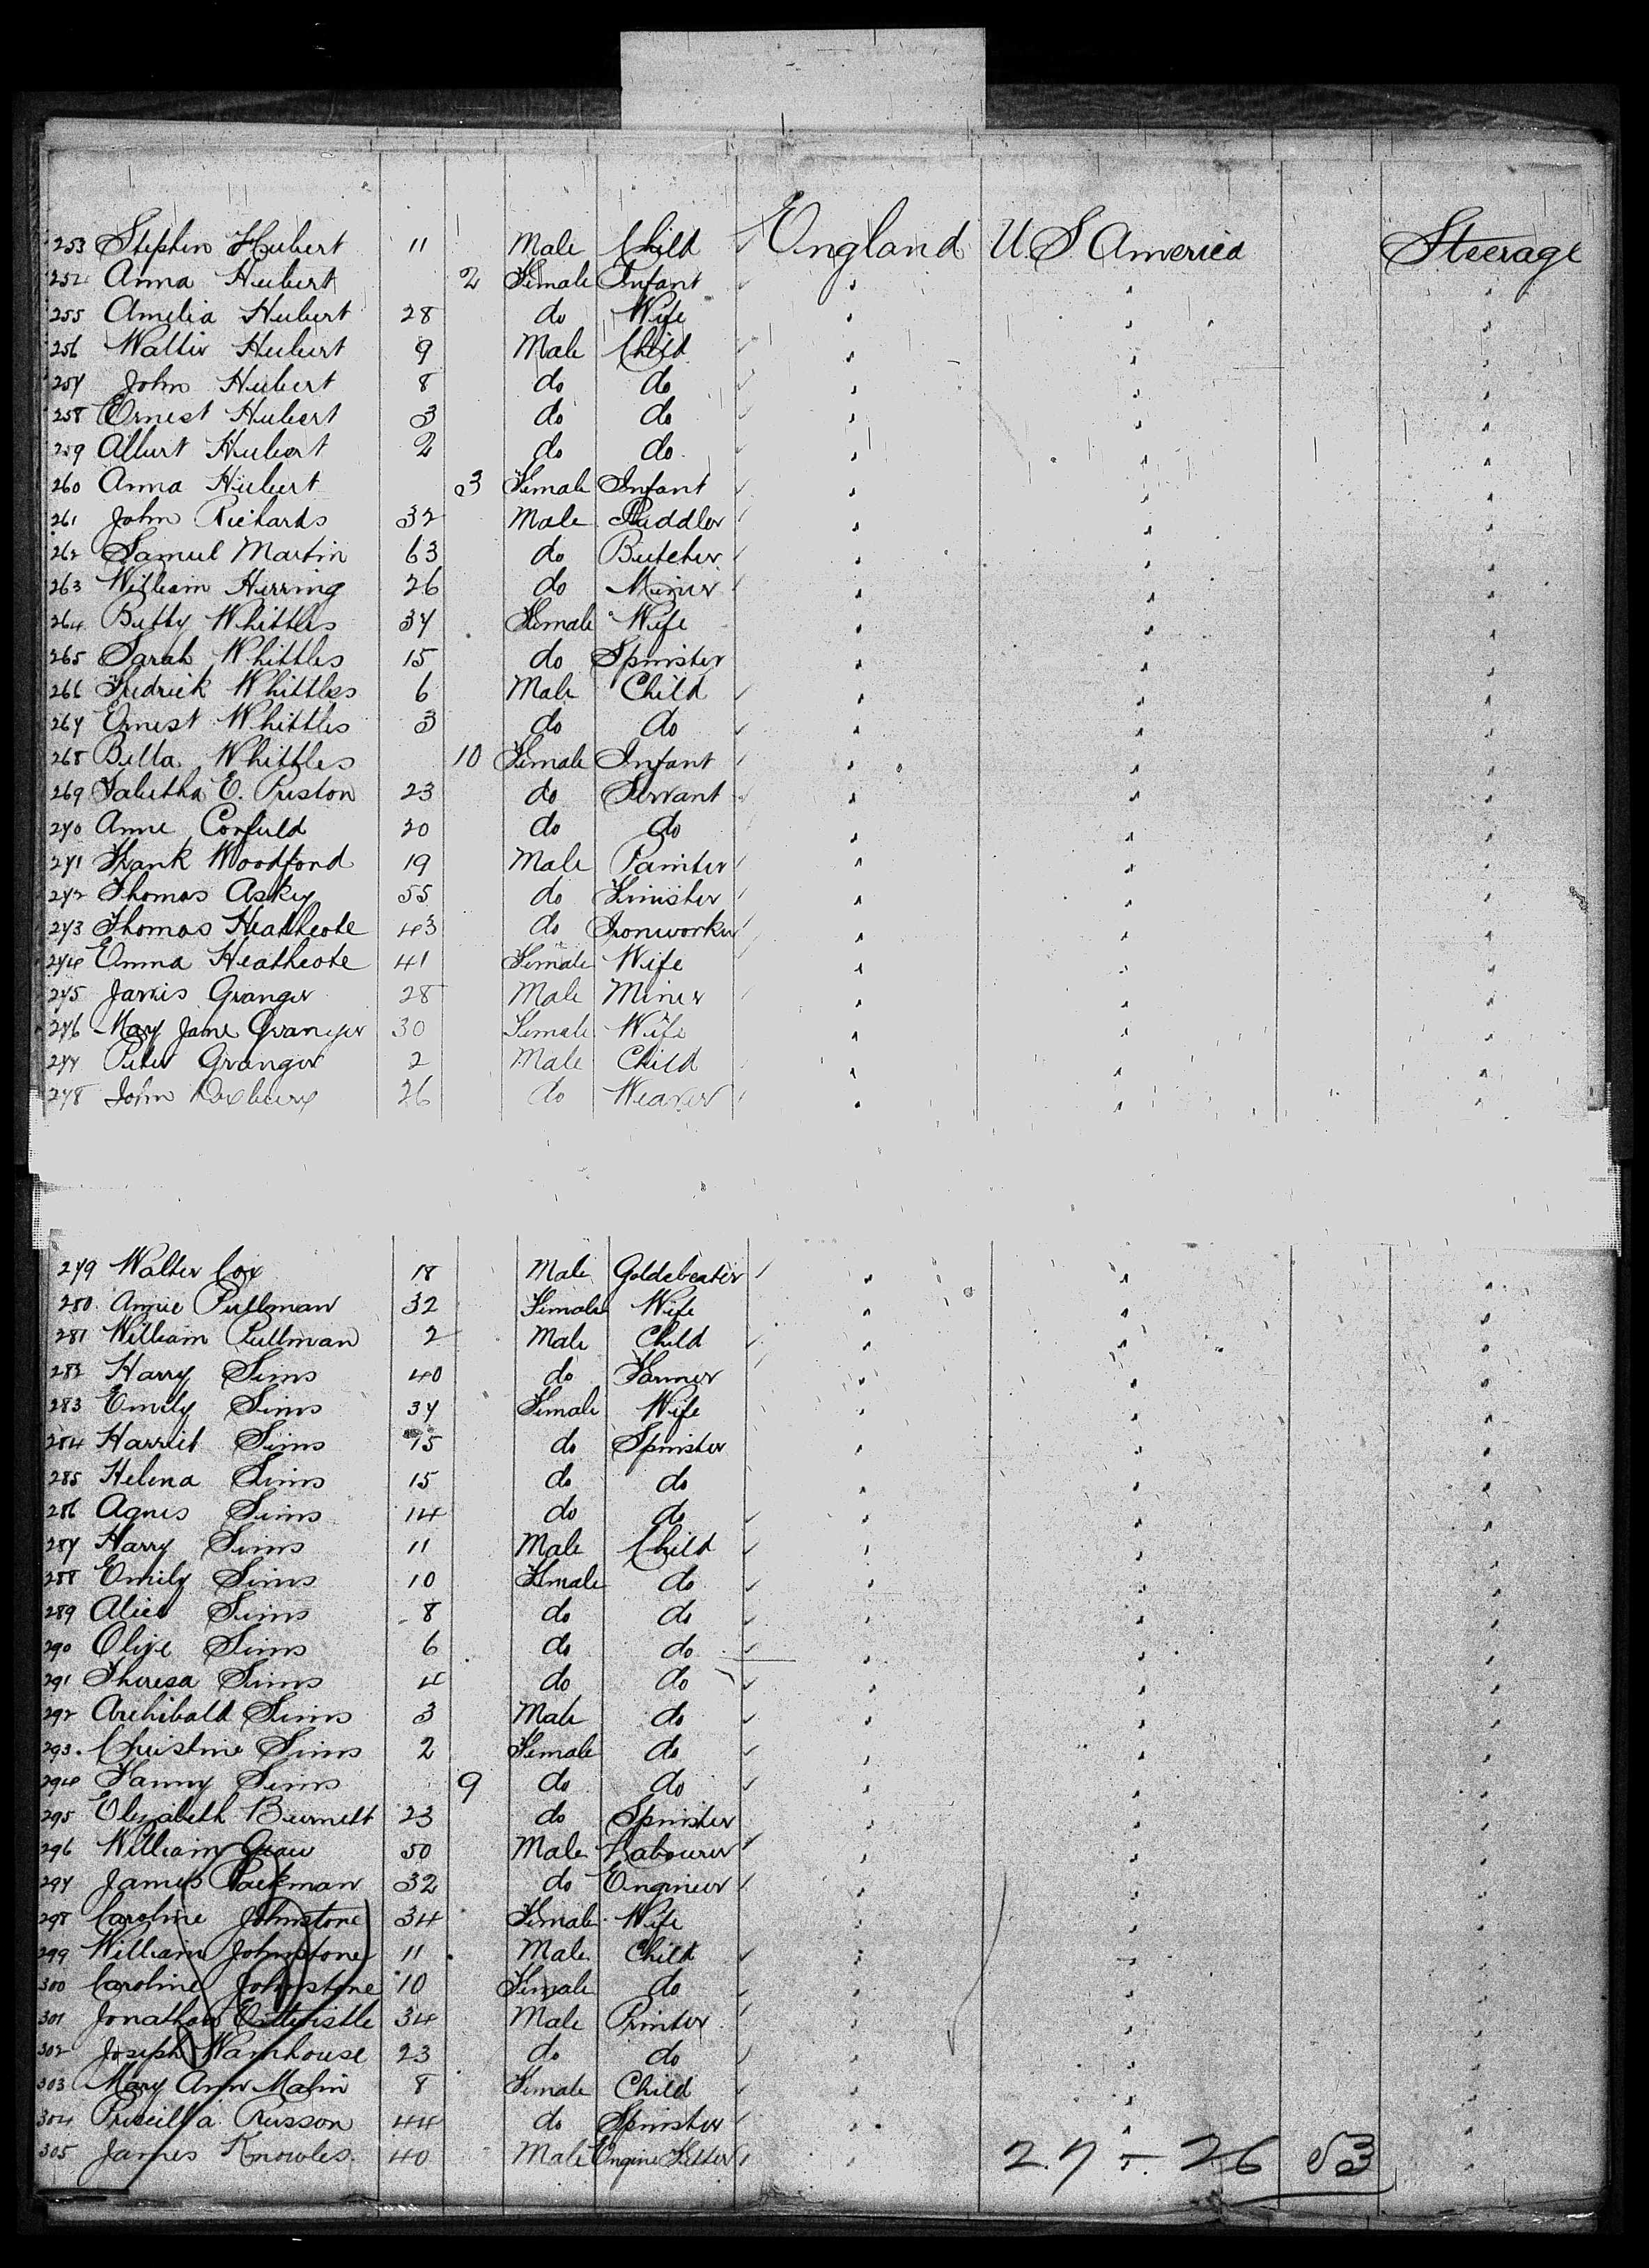 253 Stephen Hubert 11 Male Child England U.S. America Steerage
254 Anna Hubert 2 Female Infant " " "
255 Amelia Hubert 28 do Wife " " "
256 Walter Hubert 9 Male Child " " "
257 John Hubert 8 do do " " "
258 Ernest Hubert 3 do do " " "
259 Albert Hubert 2 do do " " "
260 Anna Hubert 3 Female Infant " " "
261 John Richards 32 Male Puddler " " "
262 Samuel Martin 63 do Butcher " " "
263 William Herring 26 do Miner " " "
264 Betty Whittles 37 Female Wife " " "
265 Sarah Whittles 15 do Spinster " " "
266 Fredrick Whittles 6 Male Child " " "
267 Ernest Whittles 3 do do " " "
268 Bella Whittles 10 Female Infant " " "
269 Tabitha E. Preston 23 do Servant " " "
270 Anne Corfield 20 do do " " "
271 Frank Woodford 19 Male Painter " " "
272 Thomas Askey 55 do " " "
273 Thomas Heathcote 43 do Ironworker " " "
274 Emma Heathcote 41 Female Wife " " "
275 Jarvis Granger 28 Male Miner " " "
276 Mary Jane Granger 30 Female Wife " " "
277 Peter Granger 2 Male Child " " "
278 John 26 do Weaver " " "
279 Walter Cox 18 Male Goldbeater " " "
280 Annie Pullman 32 Female Wife " " "
281 William Pullman 2 Male Child " " "
282 Harry Sims 40 do Farmer " " "
283 Emily Sims 37 Female Wife " " "
284 Harriet Sims 15 do Spinster " " "
285 Helena Sims 15 do do " " "
286 Agnes Sims 14 do do " " "
287 Harry Sims 11 Male Child " " "
288 Emily Sims 10 Female do " " "
289 Alice Sims 8 do do " " "
290 Olive Sims 6 do do " " "
291 Theresa Sims 4 do do " " "
292 Archibald Sims 3 Male do " " "
293 Christine Sims 2 Female do " " "
294 Fanny Sims 9 do do " " "
295 Elizabeth Burnett 23 do Spinster " " "
296 William 50 Male Labourer " " "
297 James Packman 32 do Engineer " " "
298 Caroline Johnstone 34 Female Wife " " "
299 William Johnstone 11 Male Child " " "
300 Caroline Johnstone 10 Female do " " "
301 Jonathan Entwistle 34 Male Printer " " "
302 Joseph Warehouse 23 do do " " "
303 Mary Ann Malin 8 Female Child " " "
304 Priscilla Russon 44 do Spinster " " "
305 James Knowles 40 Male Engine Fitter " "
27 - 26